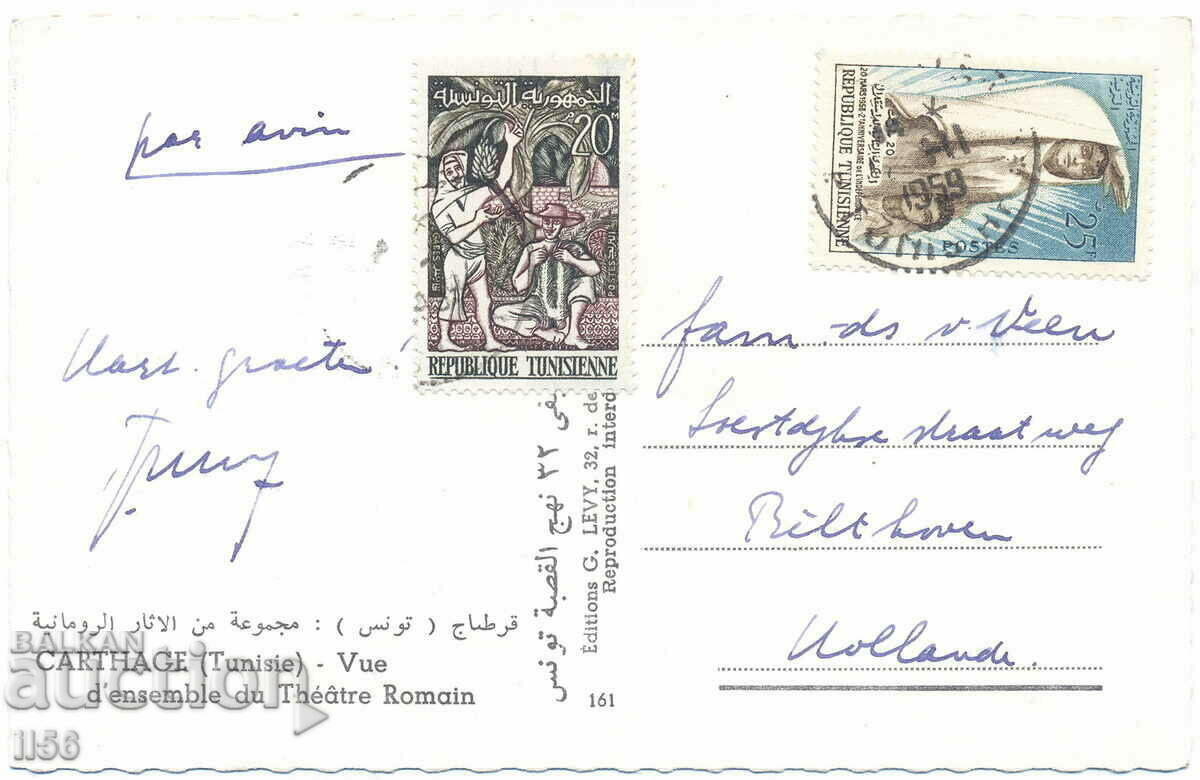 par avion
الجمهورية التونسية
20 M
REPUBLIQUE TUNISIENNE
20 MARS 1958 - 2e ANNIVERSAIRE de L'INDEPENDANCE
REPUBLIQUE TUNISIENNE
POSTES
25F
1959
Hart. groeten!
fam. ds v. Veen
Soestdijkse straatweg
Bilthoven
Hollande.
٣٢ نهج القصبة تونس
Éditions G. LEVY, 32, r. de
Reproduction interd
161
قرطاج ( تونس ) : مجموعة من الاثار الرومانية
CARTHAGE (Tunisie) - Vue
d'ensemble du Théâtre Romain
BALKAN
auction
1156